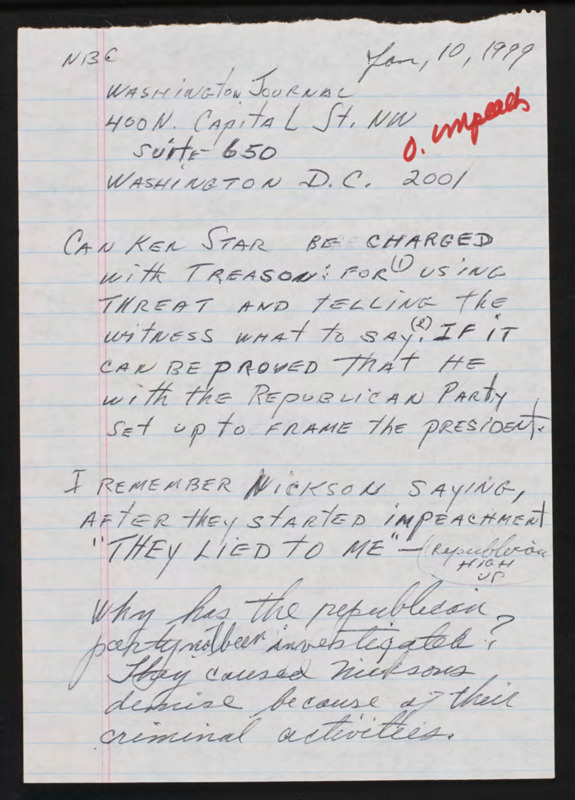 NBC
Jan, 10, 1999
WASHINGTON JOURNAL
400 N. CAPITAL St. NW
Suite 650
O. Impeach
WASHINGTON D.C. 2001
CAN KEN STAR BE CHARGED
with TREASON: FOR (1) USING
THREAT AND TELLING the
WITNESS WHAT to SAY. (2) IF IT
CAN BE PROVED THAT HE
with the REPUBLICAN PARTY
SET UP to FRAME the PRESIDENT.
I REMEMBER NICKSON SAYING,
AFTER they STARTED IMPEACHMENT
"THEY LIED TO ME" – (Republican
HIGH
UP
Why has the republican
party not been investigated?
They caused Nicksons
demise because of their
criminal activities.